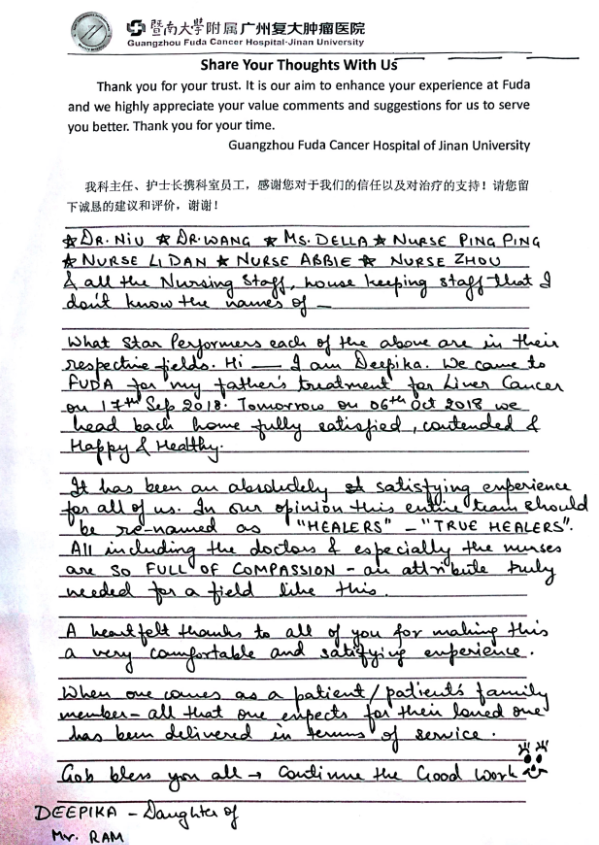 暨南大学附属广州复大肿瘤医院
Guangzhou Fuda Cancer Hospital-Jinan University
Share Your Thoughts With Us
Thank you for your trust. It is our aim to enhance your experience at Fuda
and we highly appreciate your value comments and suggestions for us to serve
you better. Thank you for your time.
Guangzhou Fuda Cancer Hospital of Jinan University
我科主任、护士长携科室员工，感谢您对于我们的信任以及对治疗的支持！请您留
下诚恳的建议和评价，谢谢！
☆ DR. NIU ☆ DR. WANG ☆ MS. DELLA ☆ NURSE PING PING
☆ NURSE LI DAN ☆ NURSE ABBIE ☆ NURSE ZHOU
& all the Nursing Staff, house keeping staff that I
don't know the names of –
What Star Performers each of the above are in their
respective fields. Hi — I am Deepika. We came to
FUDA for my father's treatment for Liver Cancer
on 17th Sep 2018. Tomorrow on 06th Oct 2018 we
head back home fully satisfied, contended &
Happy & Healthy.
It has been an absolutely satisfying experience
for all of us. In our opinion this entire team should
be re-named as "HEALERS" – "TRUE HEALERS".
All including the doctors & especially the nurses
are SO FULL OF COMPASSION – an attribute truly
needed for a field like this.
A heartfelt thanks to all of you for making this
a very comfortable and satisfying experience.
When one comes as a patient/patient's family
member – all that one expects for their loved one
has been delivered in terms of service.
God bless you all → Continue the Good Work
DEEPIKA – Daughter of
Mr. RAM